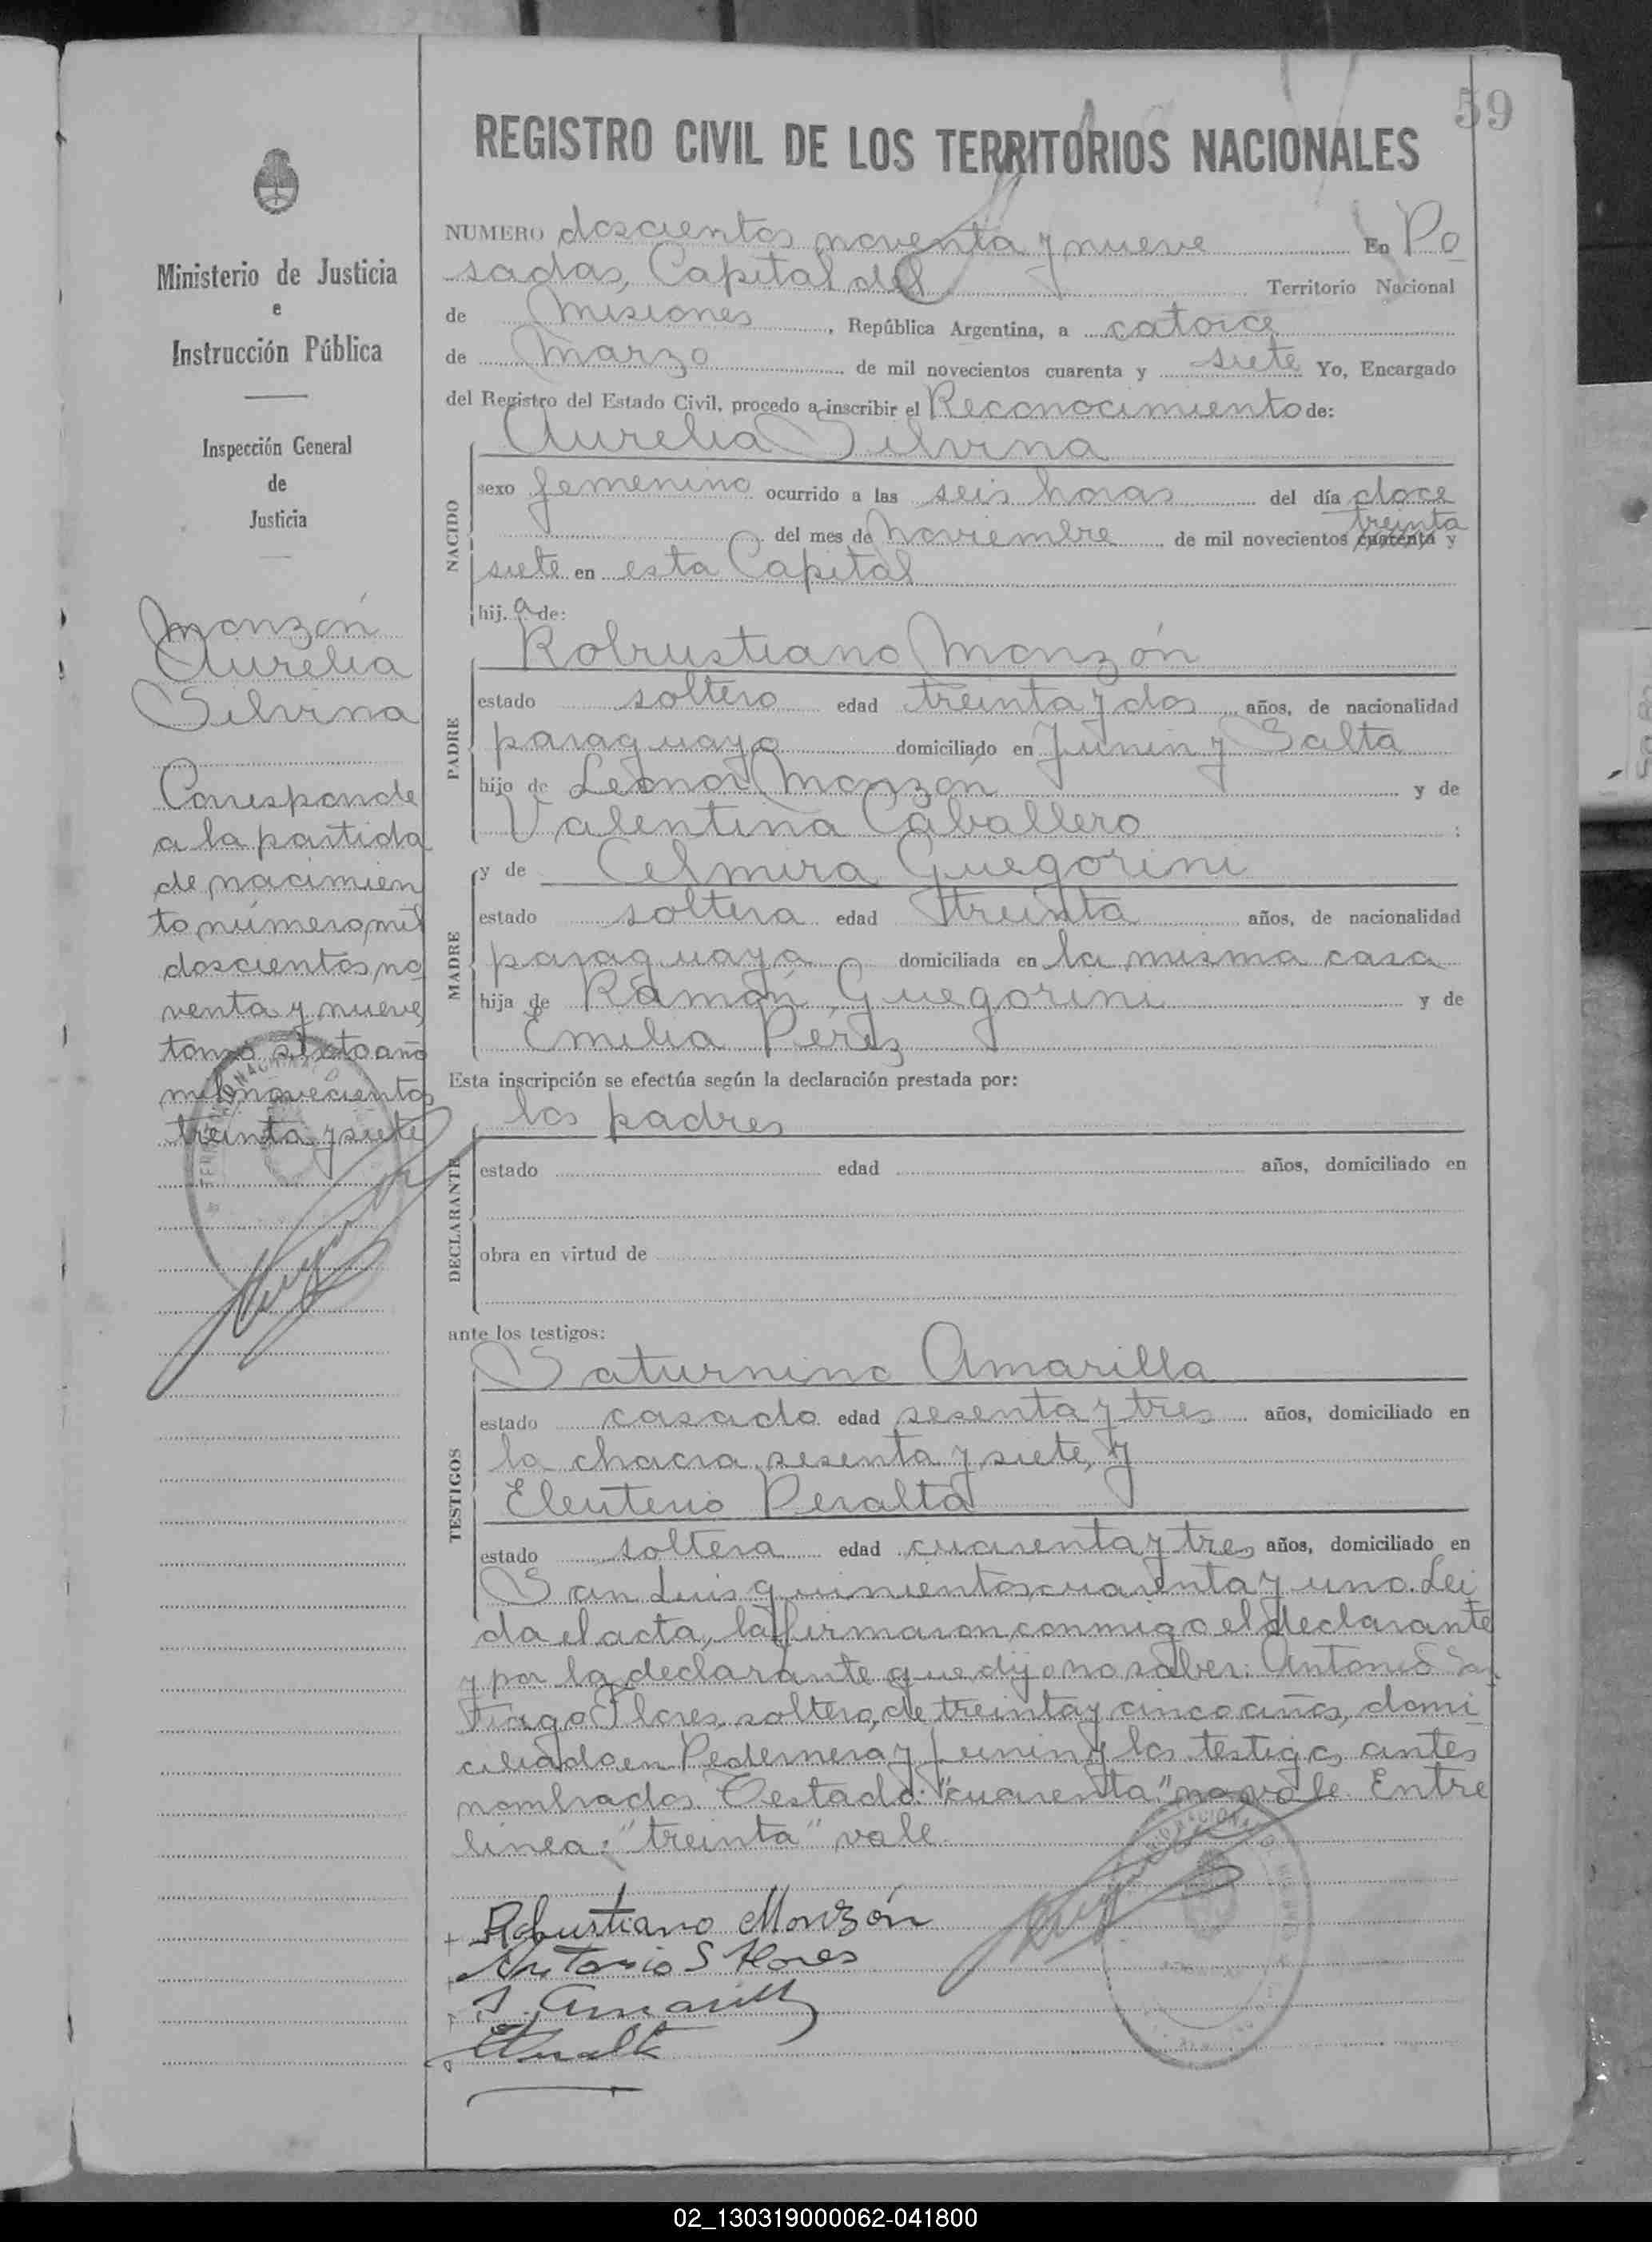 59
REGISTRO CIVIL DE LOS TERRITORIOS NACIONALES
Ministerio de Justicia
e
Instrucción Pública
Inspección General
de
Justicia
Monzón
Aurelia
Silvina
Corresponde
a la partida
de nacimien
to número mil
doscientos no
venta y nueve,
tomo sexto año
mil novecientos
treinta y siete
NUMERO doscientos noventa y nueve En Po
sadas, Capital del Territorio Nacional
de Misiones, República Argentina, a catorce
de Marzo de mil novecientos cuarenta y siete Yo, Encargado
del Registro del Estado Civil, procedo a inscribir el Reconocimiento de:
Aurelia Silvina
NACIDO
sexo femenino ocurrido a las seis horas del día doce
treinta
del mes de Noviembre de mil novecientos cuarenta y
siete en esta Capital
hij.a de:
Robustiano Monzón
PADRE
estado soltero edad treinta y dos años, de nacionalidad
paraguayo domiciliado en Junín y Salta
hijo de Leonor Monzón y de
Valentina Caballero;
y de Celmira Guegorini
MADRE
estado soltera edad treinta años, de nacionalidad
paraguaya domiciliada en la misma casa
hija de Ramón Guegorini y de
Emilia Pérez
Esta inscripción se efectúa según la declaración prestada por:
los padres
DECLARANTE
estado edad años, domiciliado en
obra en virtud de
ante los testigos:
Saturnino Amarilla
TESTIGOS
estado casado edad sesenta y tres años, domiciliado en
la chacra sesenta y siete, y
Eleuterio Peralta
estado soltera edad cuarenta y tres años, domiciliado en
San Luis quinientos cuarenta y uno. Lei
da el acta, la firmaron conmigo el declarante
y por la declarante que dijo no saber: Antonio San
tiago Flores, soltero, de treinta y cinco años, domi
ciliado en Pedernera y Junin y los testigos antes
nombrados Testado: "cuarenta" no vale. Entre
linea: "treinta" vale.
Robustiano Monzón
Antonio S Flores
S. Amarilla
E Peralta
02_130319000062-041800